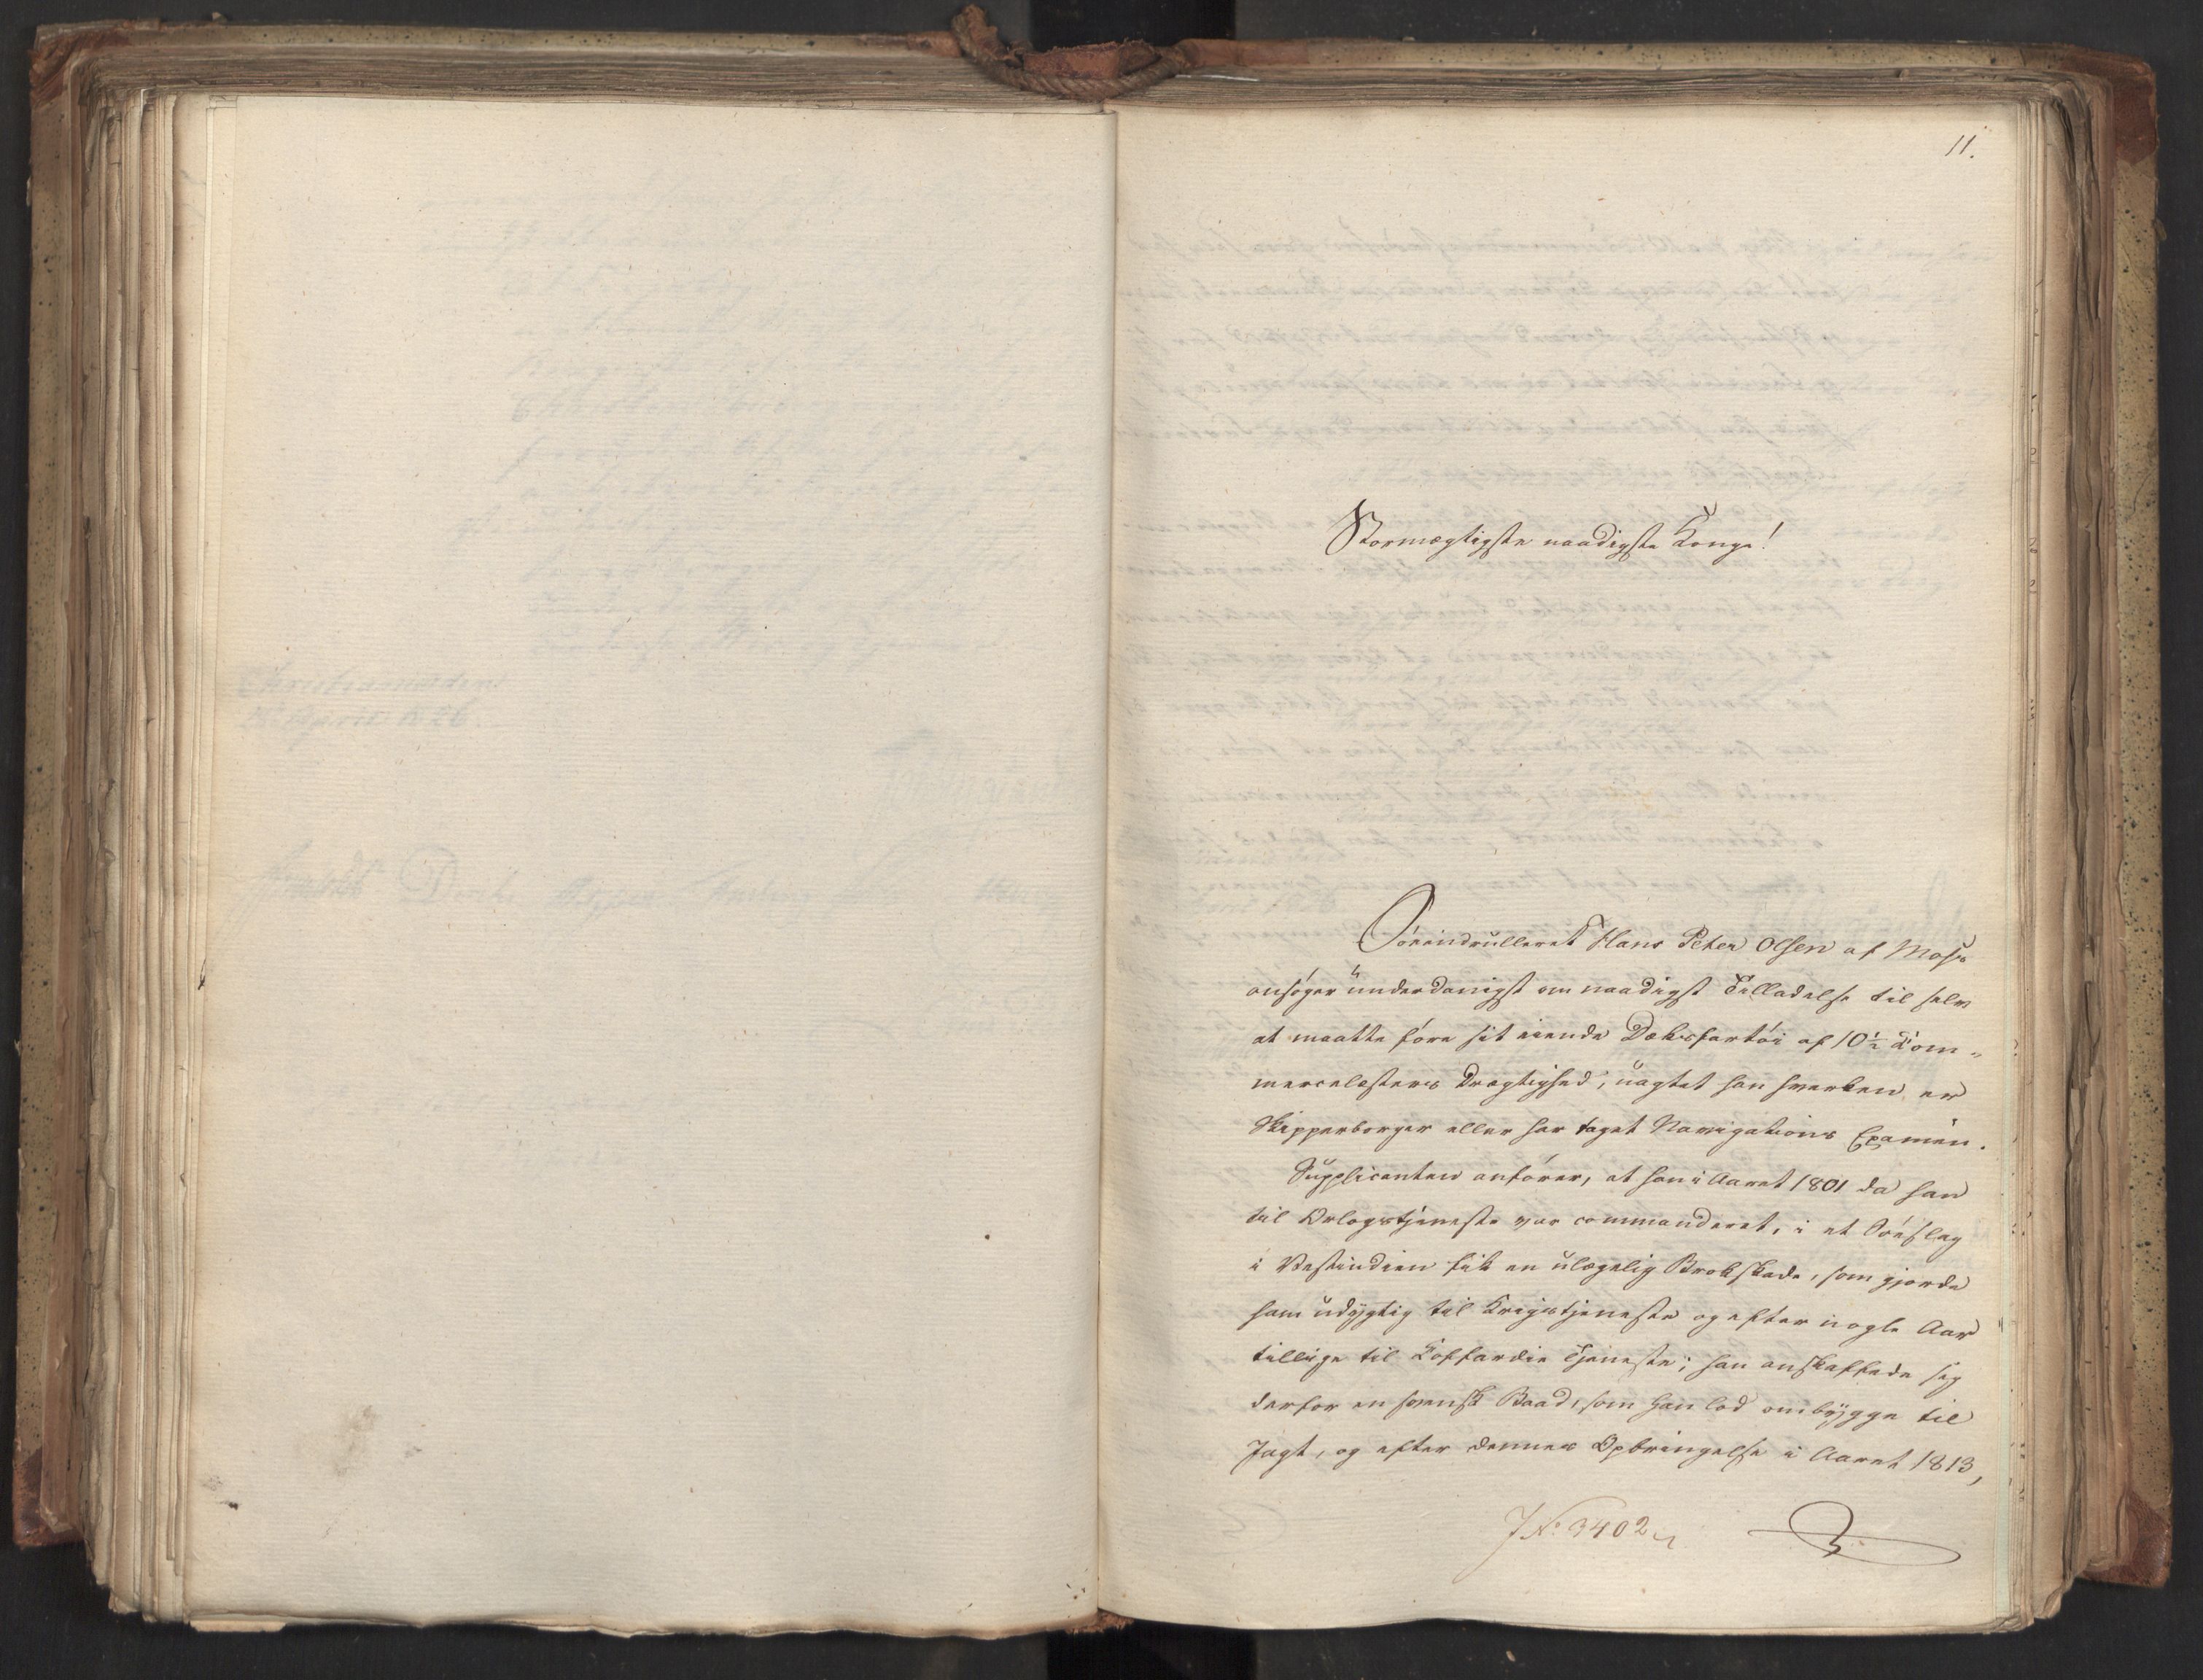 11.
Stormægtigste naadigste Konge!
Söeindrulleret Hans Peter Olsen af Moss
ansöger underdanigst om naadigst Tilladelse til selv
at maatte före sit eiende Dæksfartöi af 10½ Com-
mercelæsters Drægtighed, uagtet han hverken er
Skipperborger eller har taget Navigations Examen.
Supplicanten anförer, at han i Aaret 1801 da han
til Orlogstjeneste var commanderet, i et Söeslag
i Vestindien fik en ulægelig Brokskade, som gjorde
ham udygtig til Krigstjeneste og efter nogle Aar
tillige til Koffardie Tjeneste; han anskaffede sig
derfor en svensk Baad, som han lod ombygge til
Jagt, og efter dennes Opbringelse i Aaret 1813,
J№ 3402